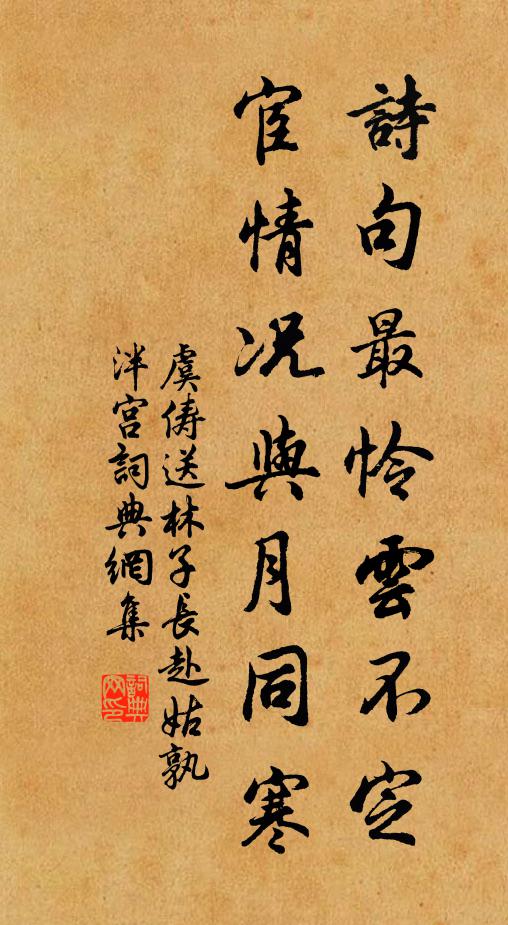 詩句最怜雲不定
宦情况與月同寒
虞俦送林子長赴姑孰
泮宮詞典網集
詞典
网印